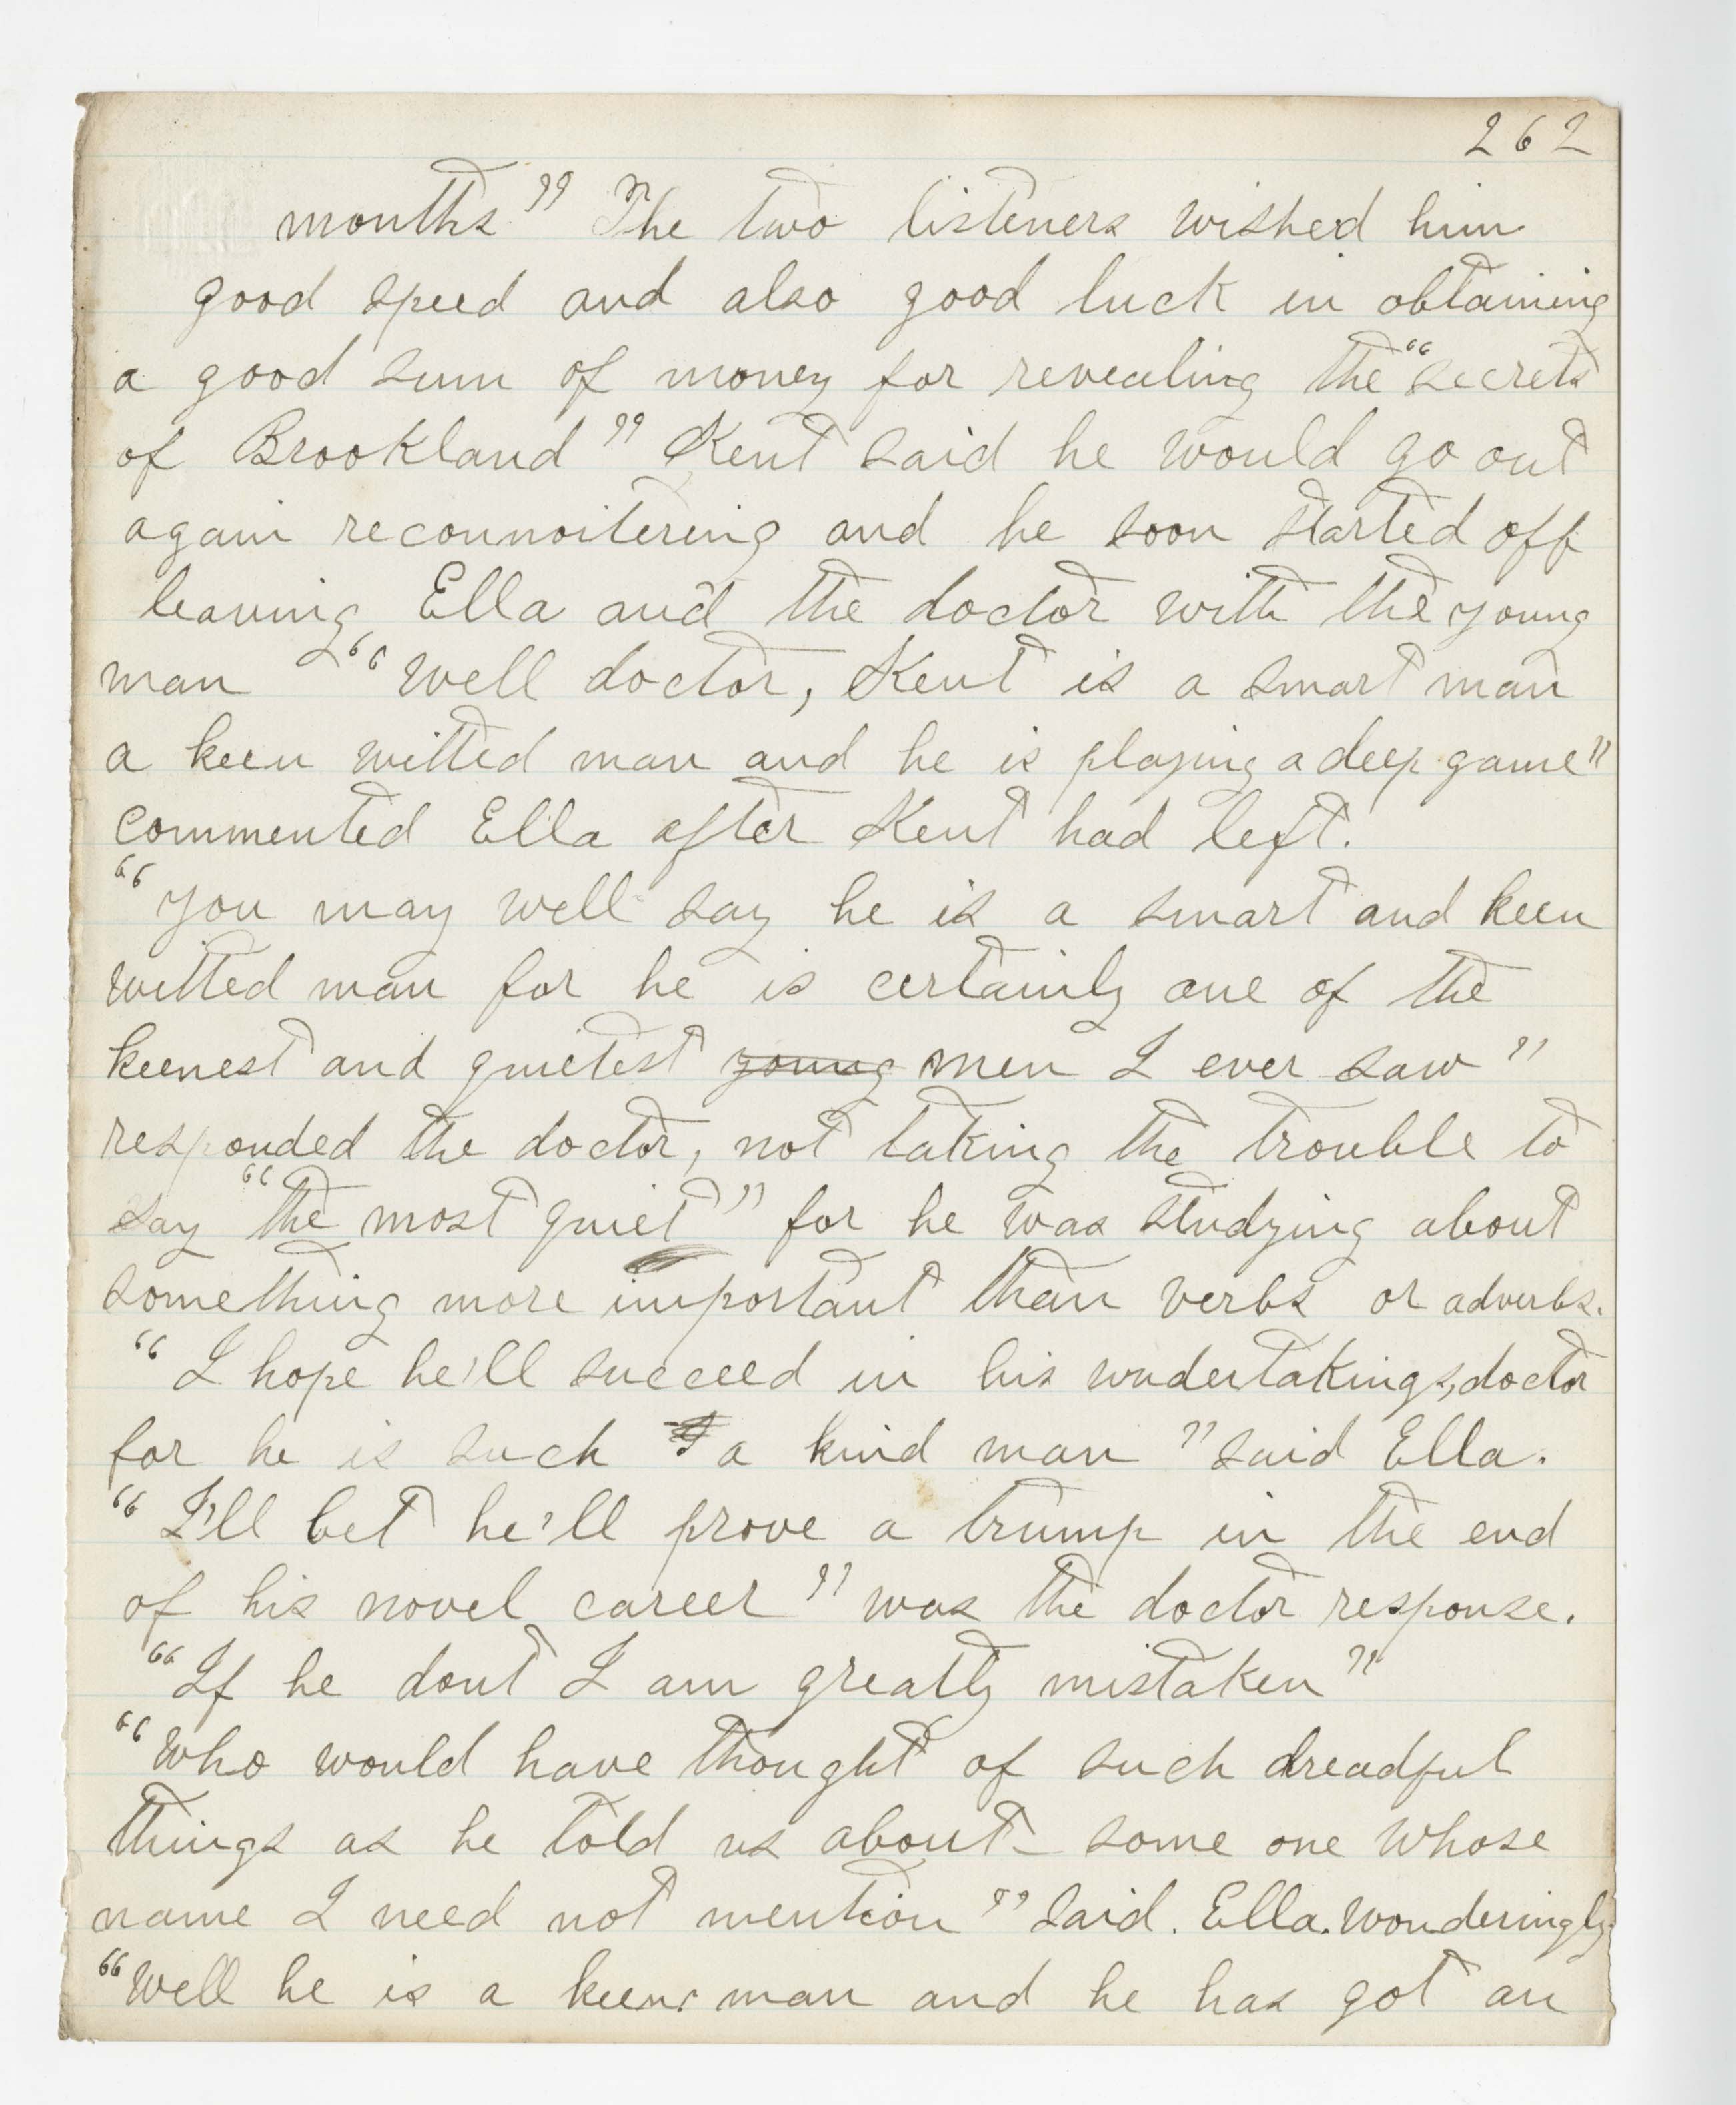 262
months" The two listeners wished him
good speed and also good luck in obtaining
a good sum of money for revealing the "secrets
of Brookland" Kent said he would go out
again reconnoitering and he soon started off
leaving Ella and the doctor with the young
man "Well doctor, Kent is a smart man
a keen witted man and he is playing a deep game"
commented Ella after Kent had left.
"You may well say he is a smart and keen
witted man for he is certainly one of the
keenest and quietest young men I ever saw"
responded the doctor, not taking the trouble to
say "the most quiet" for he was studying about
something more important than verbs or adverbs.
"I hope he'll succeed in his undertakings, doctor
for he is such a kind man" said Ella.
"I'll bet he'll prove a trump in the end
of his novel career" was the doctor response.
"If he dont I am greatly mistaken"
"Who would have thought of such dreadful
things as he told us about - some one whose
name I need not mention" said. Ella. wonderingly
"Well he is a keen man and he has got an